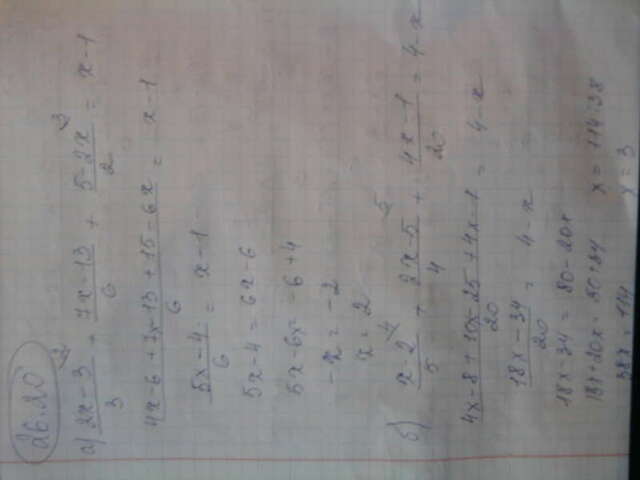 26.20
а) (2x-3)/3 + (7x-13)/6 + (5-2x)/2 = x-1
(4x-6+7x-13+15-6x)/6 = x-1
(5x-4)/6 = x-1
5x-4 = 6x-6
5x-6x = -6+4
-x = -2
x = 2
б) (x-2)/5 + (2x-5)/4 + (4x-1)/20 = 4-x
(4x-8+10x-25+4x-1)/20 = 4-x
(18x-34)/20 = 4-x
18x-34 = 80-20x
18x+20x = 80+34
38x = 114
x = 114:38
x = 3